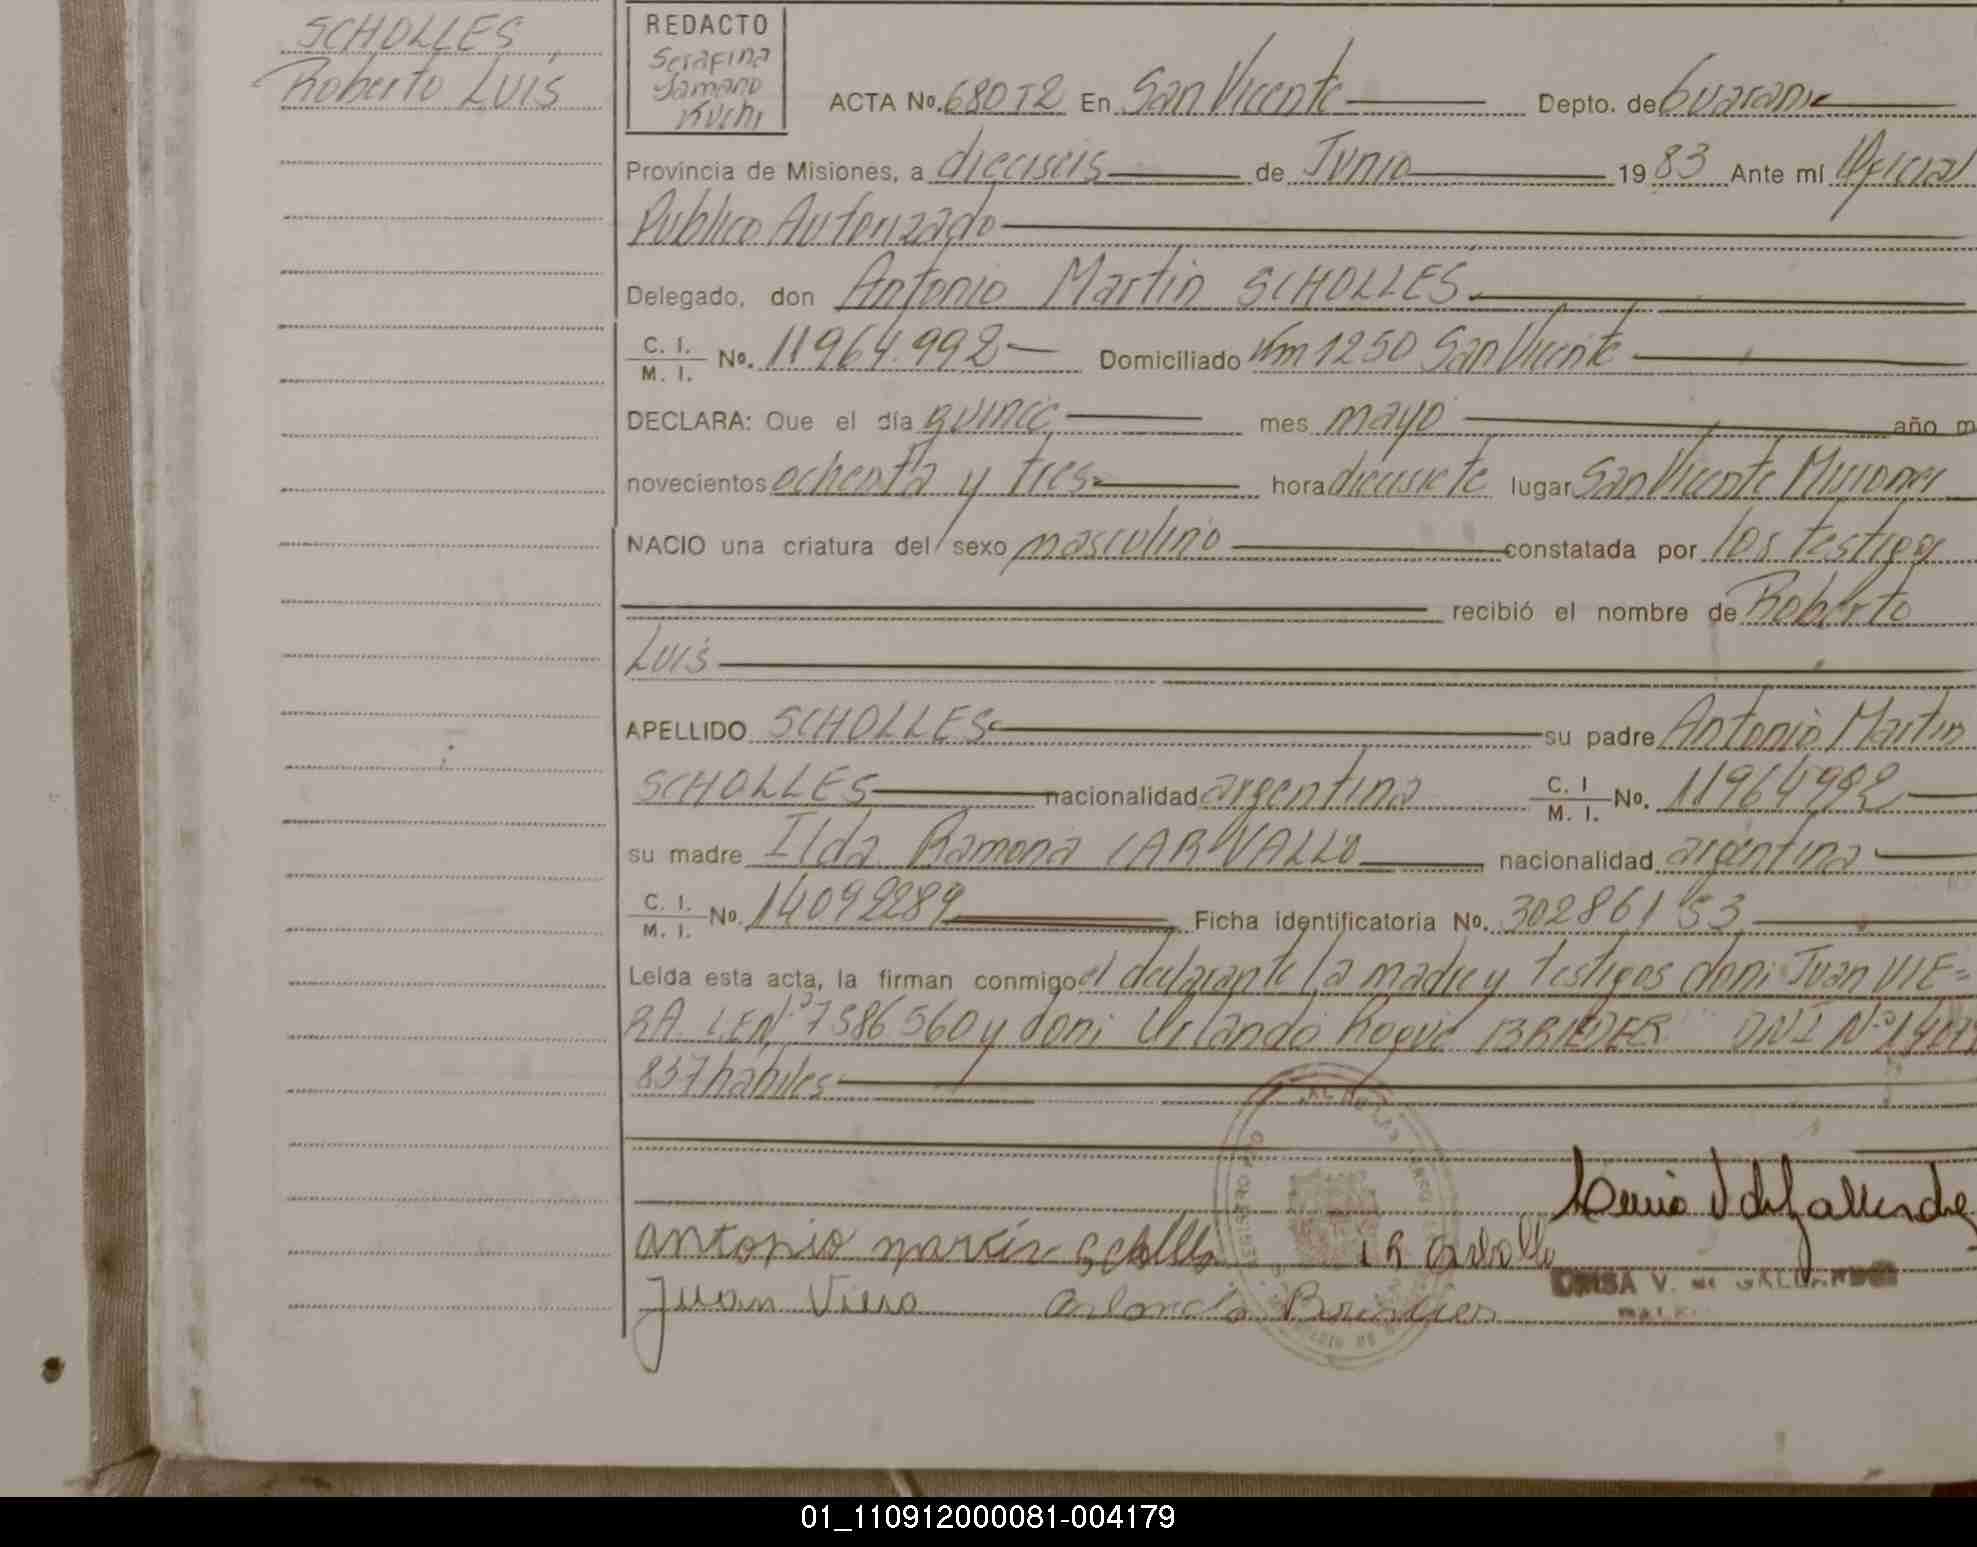 SCHOLLES
Roberto LUIS
REDACTO
Serafina
Kuchi
ACTA No. 680 T2 En San Vicente Depto. de Guarani
Provincia de Misiones, a dieciseis de Junio 19 83 Ante mí Oficial
Publico Autorizado
Delegado, don Antonio Martin SCHOLLES
C. I.
M. I. No. 11964.992 Domiciliado Km 1250 San Vicente
DECLARA: Que el día quince mes mayo año m
novecientos ochenta y tres hora diecisiete lugar San Vicente Misiones
NACIO una criatura del sexo masculino constatada por los testigos
recibió el nombre de Roberto
Luis
APELLIDO SCHOLLES su padre Antonio Martin
SCHOLLES nacionalidad argentina C. I
M. I. No. 11964992
su madre Ilda Ramona CARVALLO nacionalidad argentina
C. I.
M. I. No. 14092289 Ficha identificatoria No. 30286153
Leída esta acta, la firman conmigo el declarante la madre y testigos don: Juan VIE=
RA L.E.Nº 7586560 y don: Orlando Roque BRIEDER DNI Nº
837 habiles
antonio martin Scholles
Juan Viera